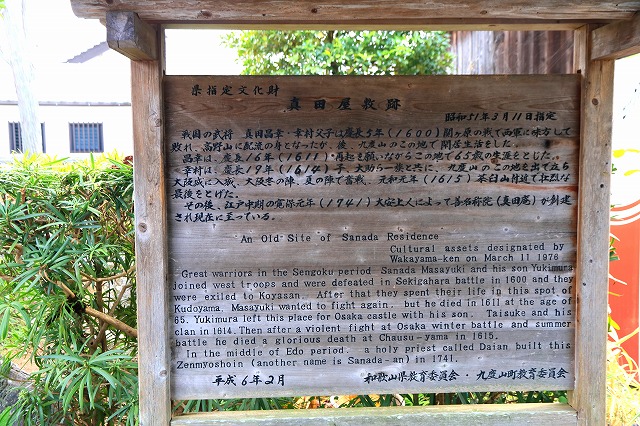 県指定文化財
真田屋敷跡
昭和51年3月11日指定
戦国の武将 真田昌幸・幸村父子は慶長5年(1600)関ヶ原の戦で西軍に味方して
敗れ、高野山に配流の身となったが、後、九度山のこの地で閑居生活をした。
昌幸は、慶長16年(1611)再起を願いながらこの地で65歳の生涯をとじた。
幸村は、慶長19年(1614)子、大助ら一族と共に、九度山のこの地を出て立ち
大阪城に入城、大阪冬の陣、夏の陣で奮戦、元和元年(1615)茶臼山附近で壮烈な
最後をとげた。
その後、江戸中期の寛保元年(1741)大安上人によって善名称院(真田庵)が創建
され現在に至っている。
An Old Site of Sanada Residence
Cultural assets designated by
Wakayama-ken on March 11 1976
Great warriors in the Sengoku period Sanada Masayuki and his son Yukimura
joined west troops and were defeated in Sekigahara battle in 1600 and they
were exiled to Koyasan. After that they spent their life in this spot of
Kudoyama. Masayuki wanted to fight again, but he died in 1611 at the age of
65. Yukimura left this place for Osaka castle with his son. Taisuke and his
clan in 1614. Then after a violent fight at Osaka winter battle and summer
battle he died a glorious death at Chausu-yama in 1615.
In the middle of Edo period. a holy priest called Daian built this
Zenmyoshoin (another name is Sanada-an) in 1741.
平成6年2月 和歌山県教育委員会・九度山町教育委員会